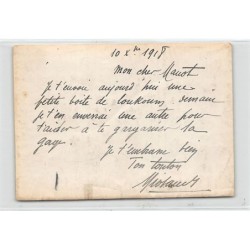 10 Xbre 1918
Mon cher
Je t'envoie aujourd'hui une
petite boite de loukoums demain
je t'en enverrai une autre pour
t'aider à te gargariser la
gorge.
Je t'embrasse bien
Ton tonton